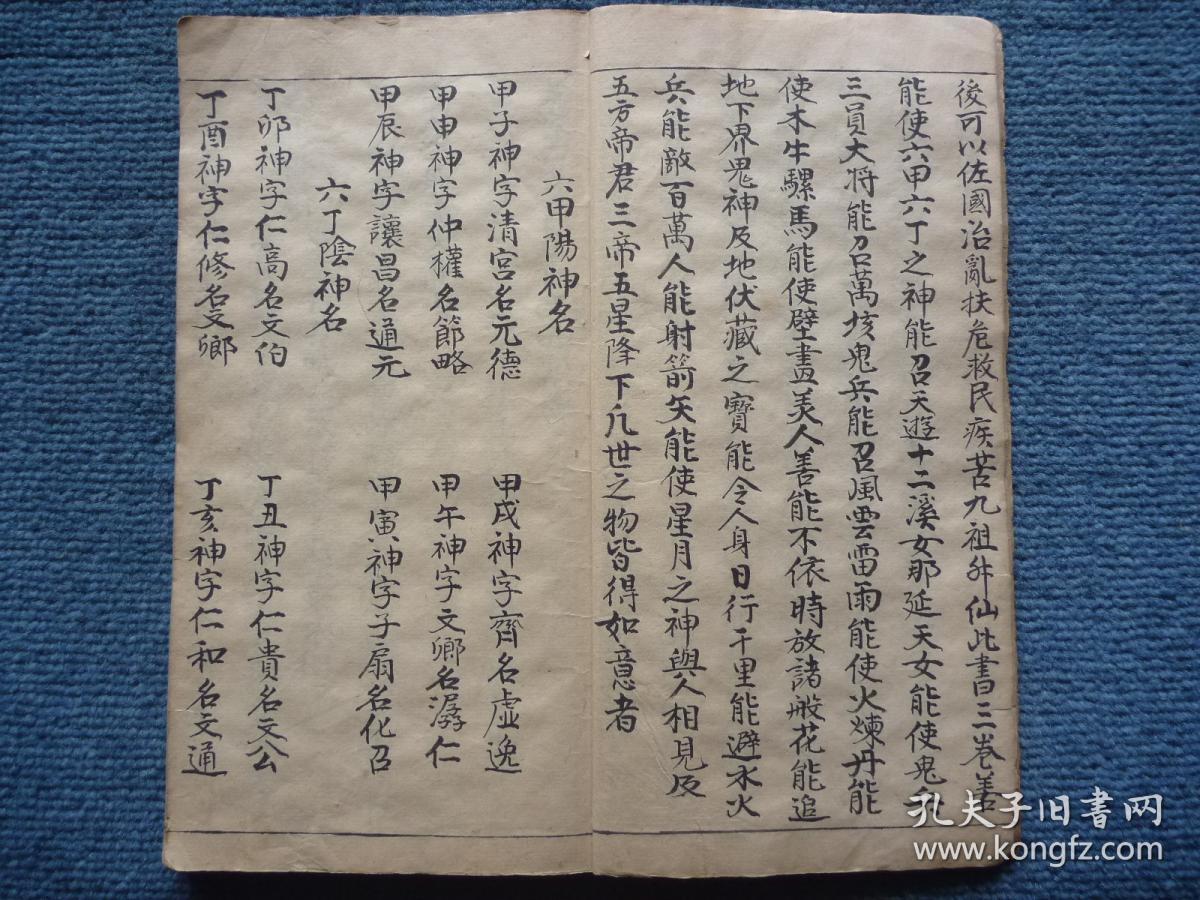 後可以佐國治亂扶危救民疾苦九祖升仙此書三卷善
能使六甲六丁之神能召天遊十二溪女那延天女能使鬼兵
三員大将能召萬垓鬼兵能召風雲雷雨能使火煉丹能
使木牛騾馬能使壁畫美人善能不依時放諸般花能追
地下界鬼神及地伏藏之寶能令人身日行千里能避水火
兵能敵百萬人能射箭矢能使星月之神與人相見及
五方帝君三帝五星降下凢世之物皆得如意者
六甲陽神名
甲子神字清宮名元德 甲戌神字齊名虛逸
甲申神字仲權名節略 甲午神字文卿名潺仁
甲辰神字讓昌名通元 甲寅神字子扇名化召
六丁陰神名
丁卯神字仁高名文伯 丁丑神字仁貴名文公
丁酉神字仁修名文卿 丁亥神字仁和名文通
孔夫子旧书网
www.kongfz.com